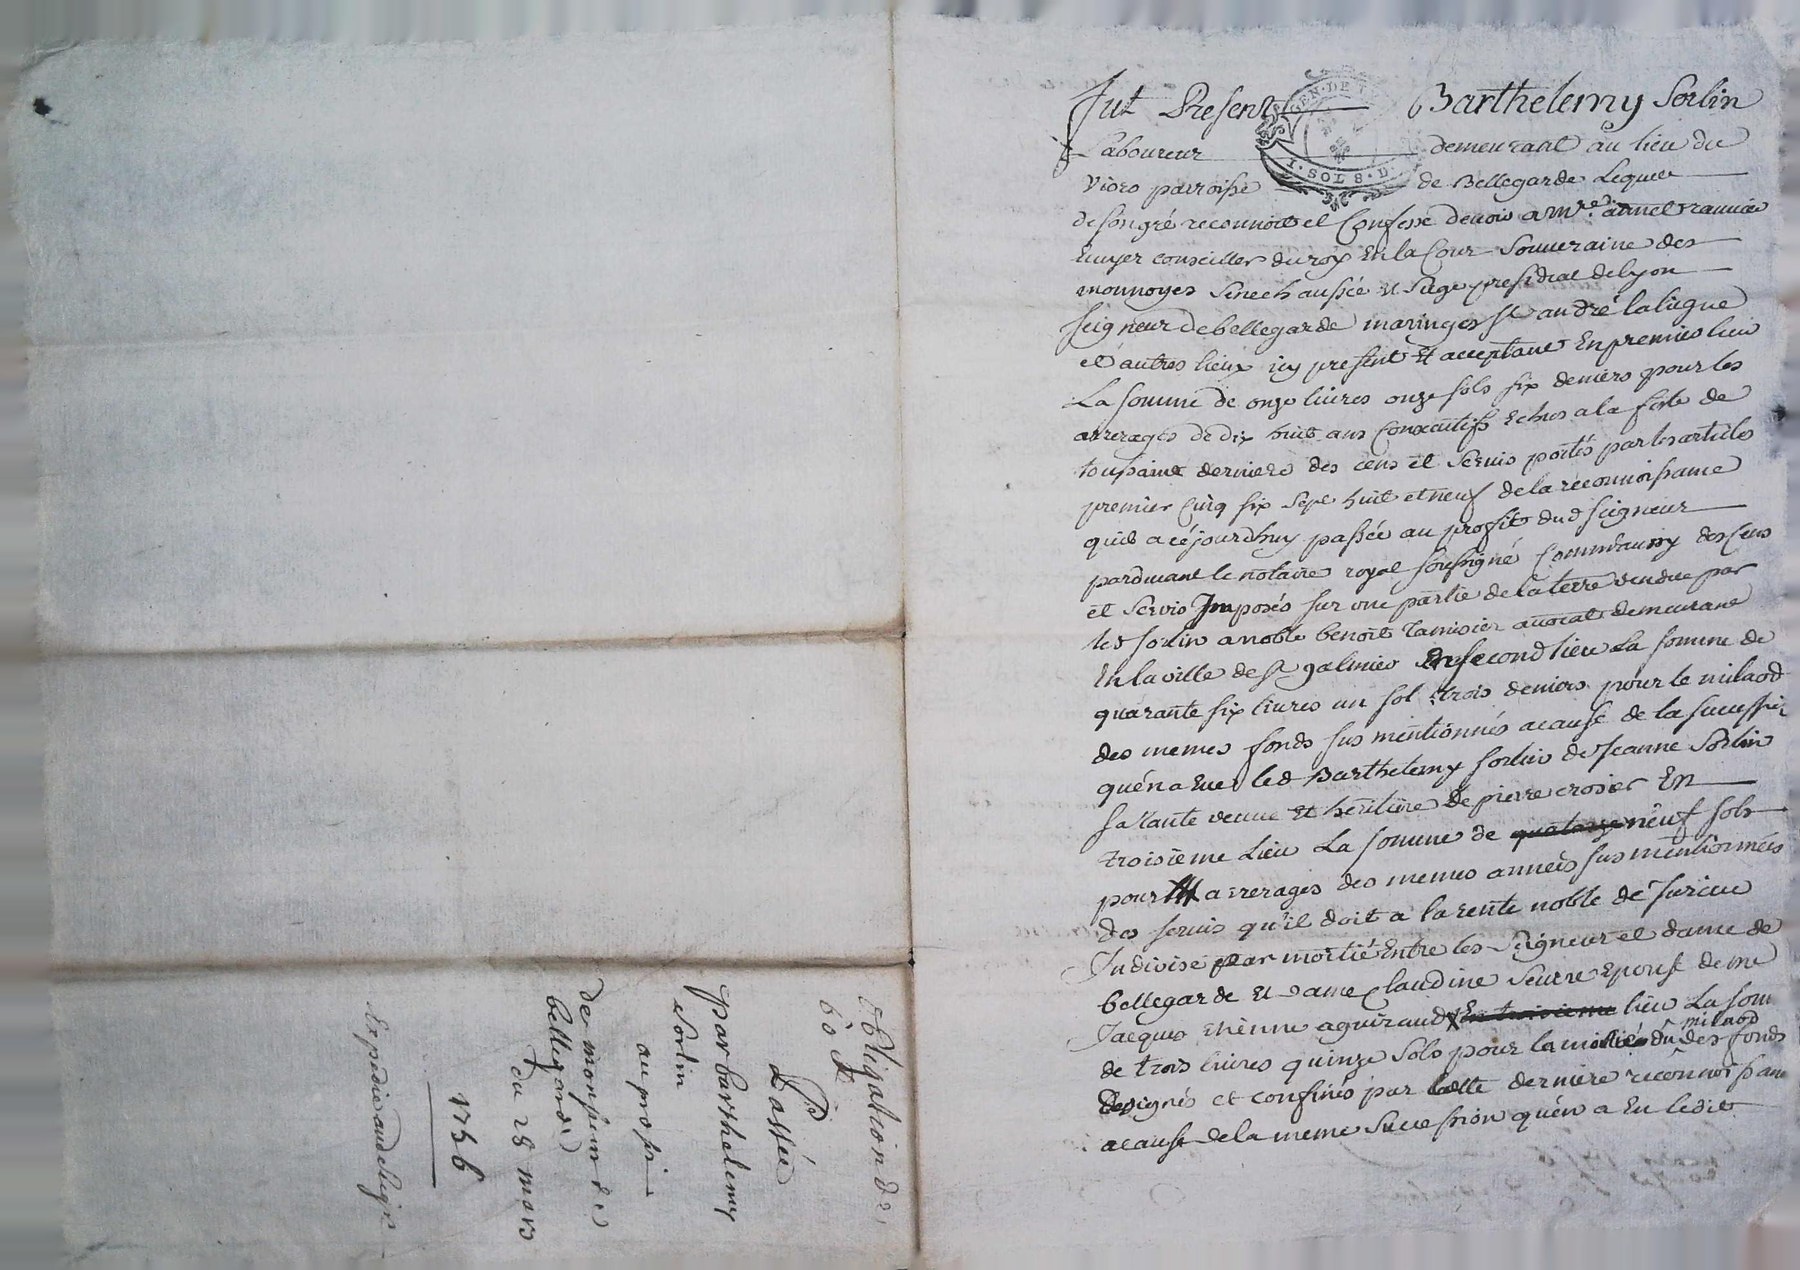 Fut Present Barthelemy Sorlin
Laboureur demeurant au lieu du
Viors parroisse de Bellegarde Lequel
de son gré reconnoit et Confesse devoir a Mre
Ecuyer conseiller du roy En la Cour Souveraine des
monnoyes Senechaussée et Siege presidial de lyon
seigneur de bellegarde maringes st andré laliegue
et autres lieux icy present Et acceptant En premier lieu
La somme de onze livres onze sols six deniers pour les
arrerages de dix huit ans Consecutifs Echus a la feste de
toussaint derniere des cens et Servis portés par les articles
premier Cinq six Sept huit et neuf de la reconnoissance
quil a cejourdhuy passée au profit dud seigneur
pardevant le notaire royal soussigné des Cens
et Servis Imposés sur une partie de la terre vendue par
led sorlin a noble benoit Tamisier avocat demeurant
En la ville de st galmier En second lieu La somme de
quarante six livres un sol trois deniers pour le milaod
des memes fonds sus mentionnés acause de la succession
quen a Eue led Barthelemy sorlin de Jeanne Sorlin
sa Tante veuve Et heritiere de pierre crosier En
troisieme Lieu La somme de quatorze neuf sols
pour arrerages des memes années sus mentionnées
des servis qu'il doit a la rente noble de surieu
Indivise par moitié Entre les Seigneur et dame de
bellegarde et Dame Claudine Seurre Epouse de me
Jacques Etienne aguiraud En troisieme lieu La som
de trois livres quinze Sols pour la moitié du milaod des fonds
Designés et confinés par ladte derniere reconnoissance
acause de la meme Succession quen a Eu ledit
obligation de
60 #
Passée
par barthelemy
sorlin
au profit
de monsieur de
bellegarde
du 28 mars
1756